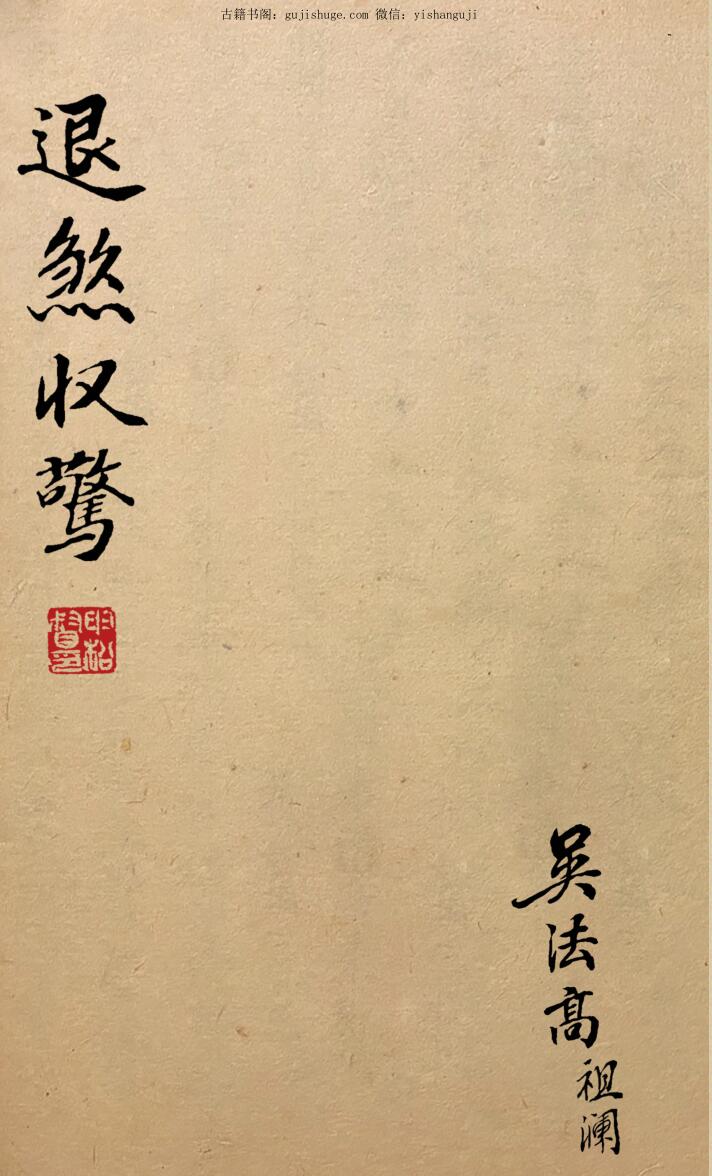 古籍书阁：gujishuge.com 微信：yishanguji
退煞收驚
吴法高
祖澜